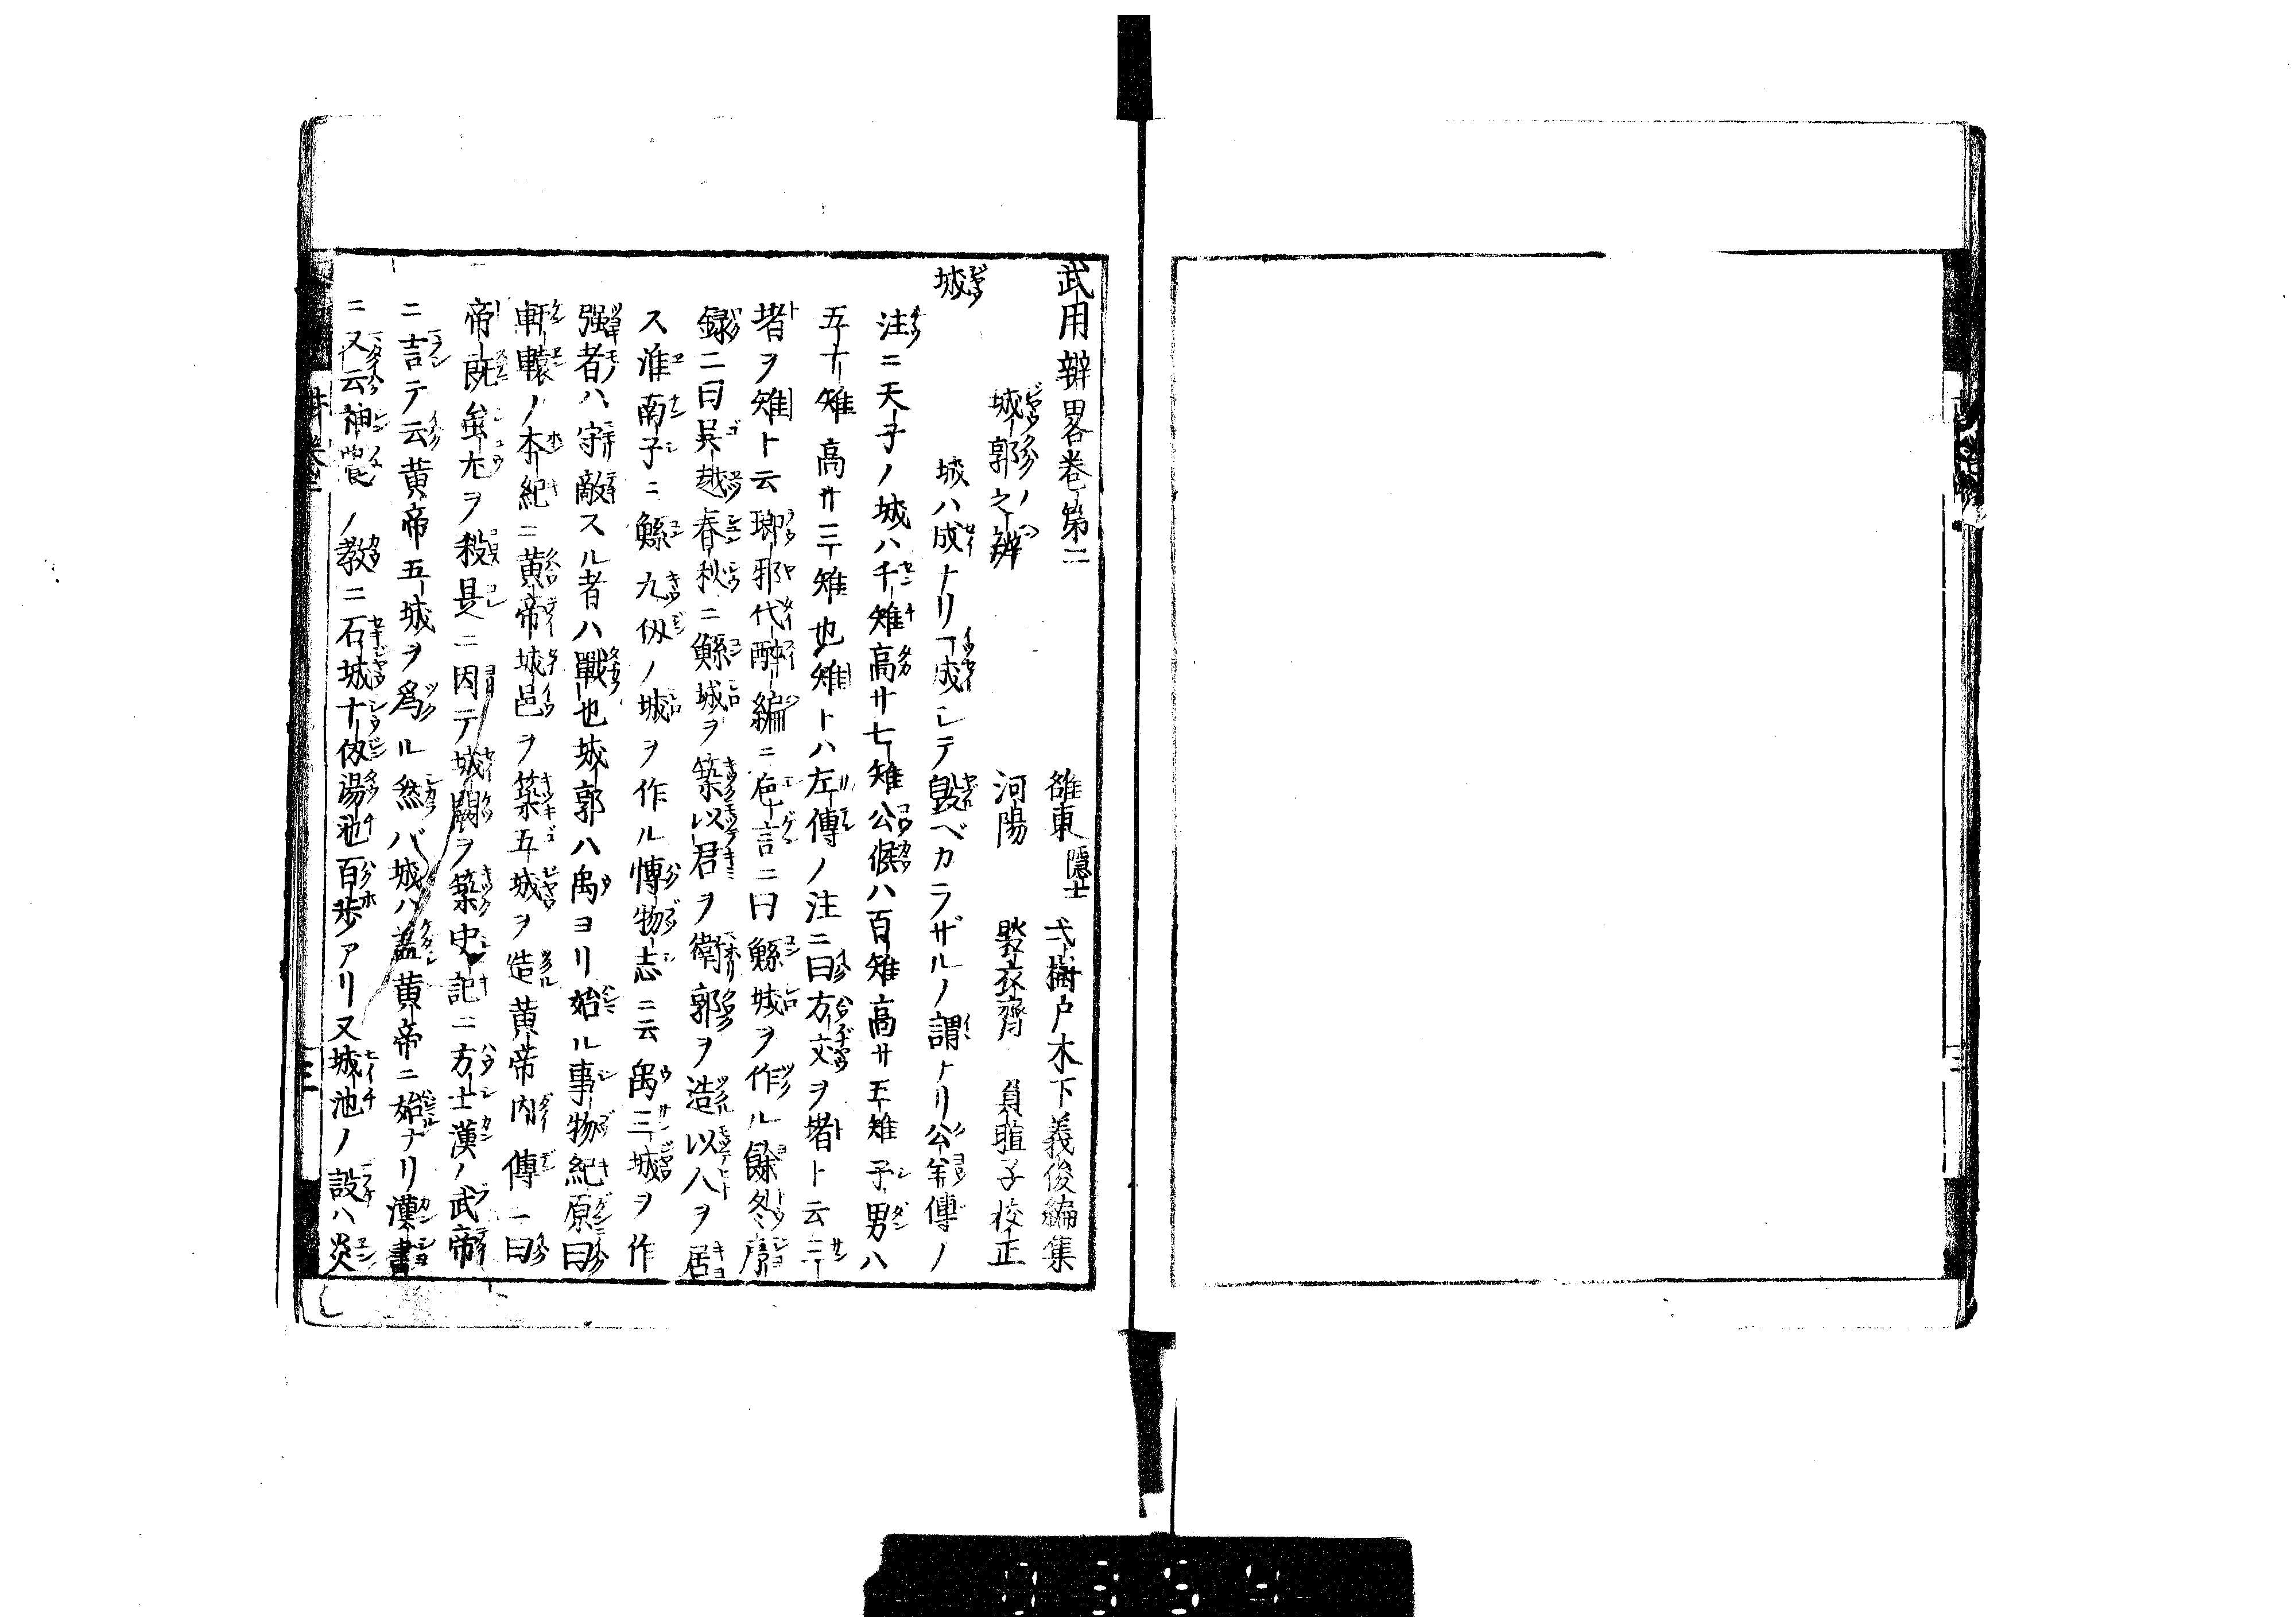 武用辨畧巻第二
雒東隱士 弍樹戸木下義俊編集
城郭之辨
河陽 褧衣齊 貟暄子校正
城
城ハ成ナリ一成シテ毀ベカラザルノ謂ナリ公羊傳ノ
注ニ天子ノ城ハ千雉高サ七雉公侯ハ百雉高サ五雉子男ハ
五十雉高サ三雉也雉トハ左傳ノ注ニ曰方丈ヲ堵ト云三
堵ヲ雉ト云瑯邪代醉編ニ巵言ニ曰鯀城ヲ作ル餘冬序
録ニ曰呉越春秋ニ鯀城ヲ築以君ヲ衛郭ヲ造以人ヲ居
ス淮南子ニ鯀九仭ノ城ヲ作ル博物志ニ云禹三城ヲ作
强者ハ守敵スル者ハ戰也城郭ハ禹ヨリ始ル事物紀原曰
軒轅ノ本紀ニ黄帝城邑ヲ築五城ヲ造黄帝内傳ニ曰
帝既蚩尤ヲ殺是ニ因テ城闕ヲ築史記ニ方士漢ノ武帝
ニ言テ云黄帝五城ヲ爲ル然バ城ハ蓋黄帝ニ始ナリ漢書
ニ又云神農ノ教ニ石城十仭湯池百歩アリ又城池ノ設ハ炎